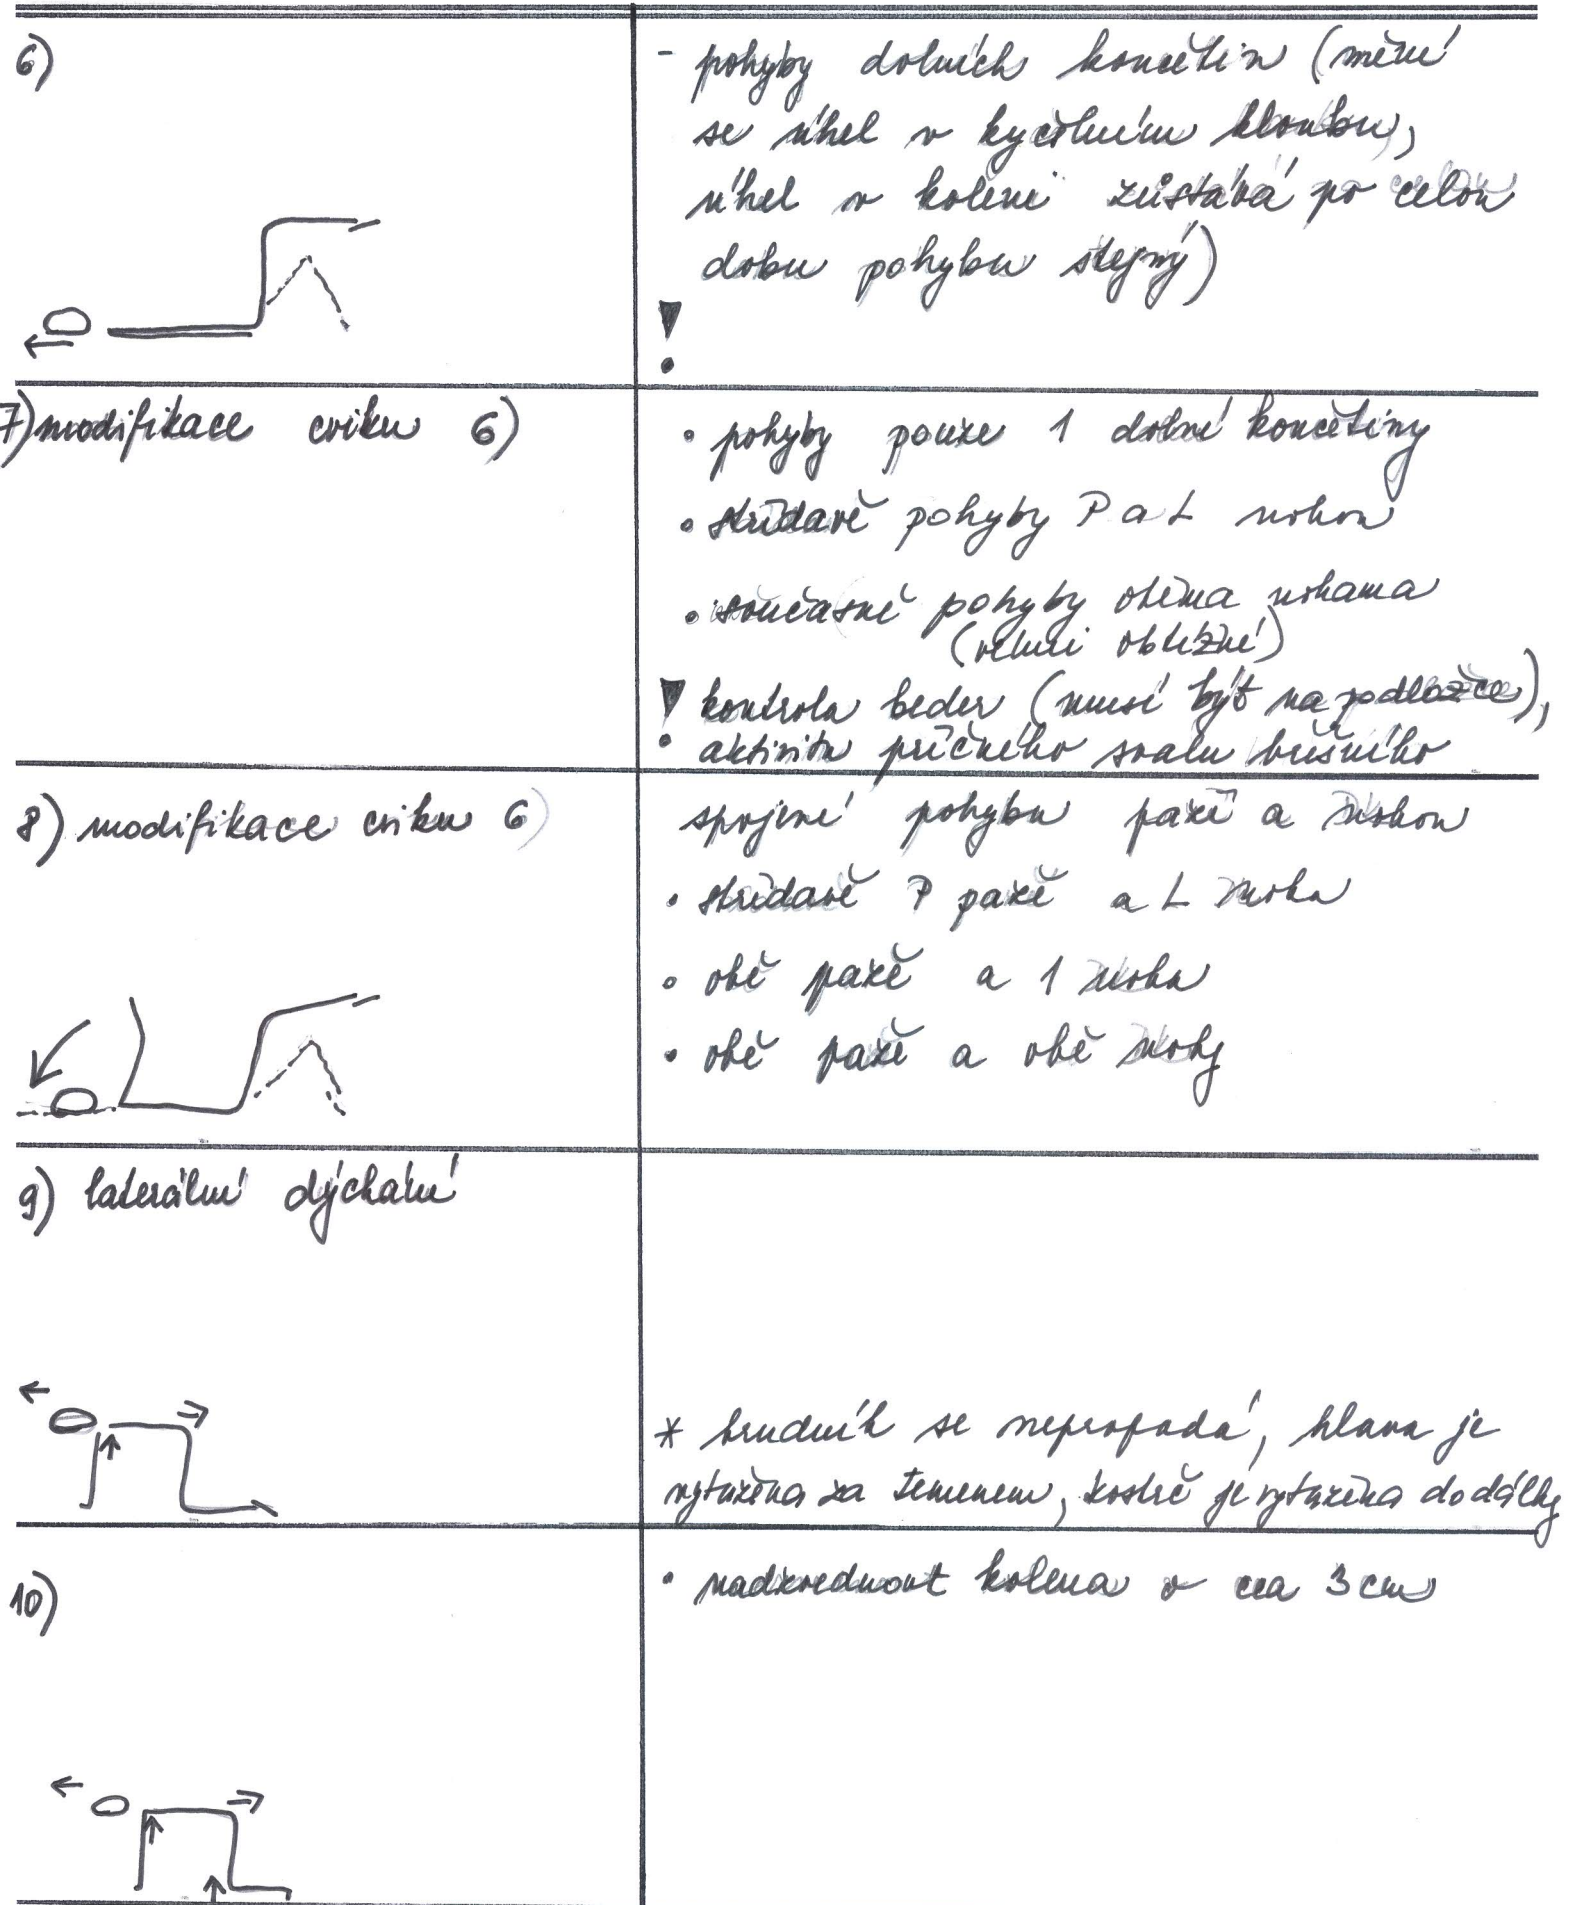 6)
- pohyby dolních končetin (mění
se úhel v kyčelním kloubu,
úhel v koleni zůstává po celou
dobu pohybu stejný)
!
7) modifikace cviku 6)
• pohyby pouze 1 dolní končetiny
• střídavě pohyby P a L nohou
• současně pohyby oběma nohama
(velmi obtížné)
! kontrola beder (musí být na podložce),
aktivita příčného svalu břišního
8) modifikace cviku 6)
spojení pohybu paží a nohou
• střídavě P paže a L noha
• obě paže a 1 noha
• obě paže a obě nohy
9) laterální dýchání
* hrudník se nepropadá, hlava je
vytažena za temenem, kostrč je vytažena do dálky
10)
• nadzvednout kolena o cca 3 cm